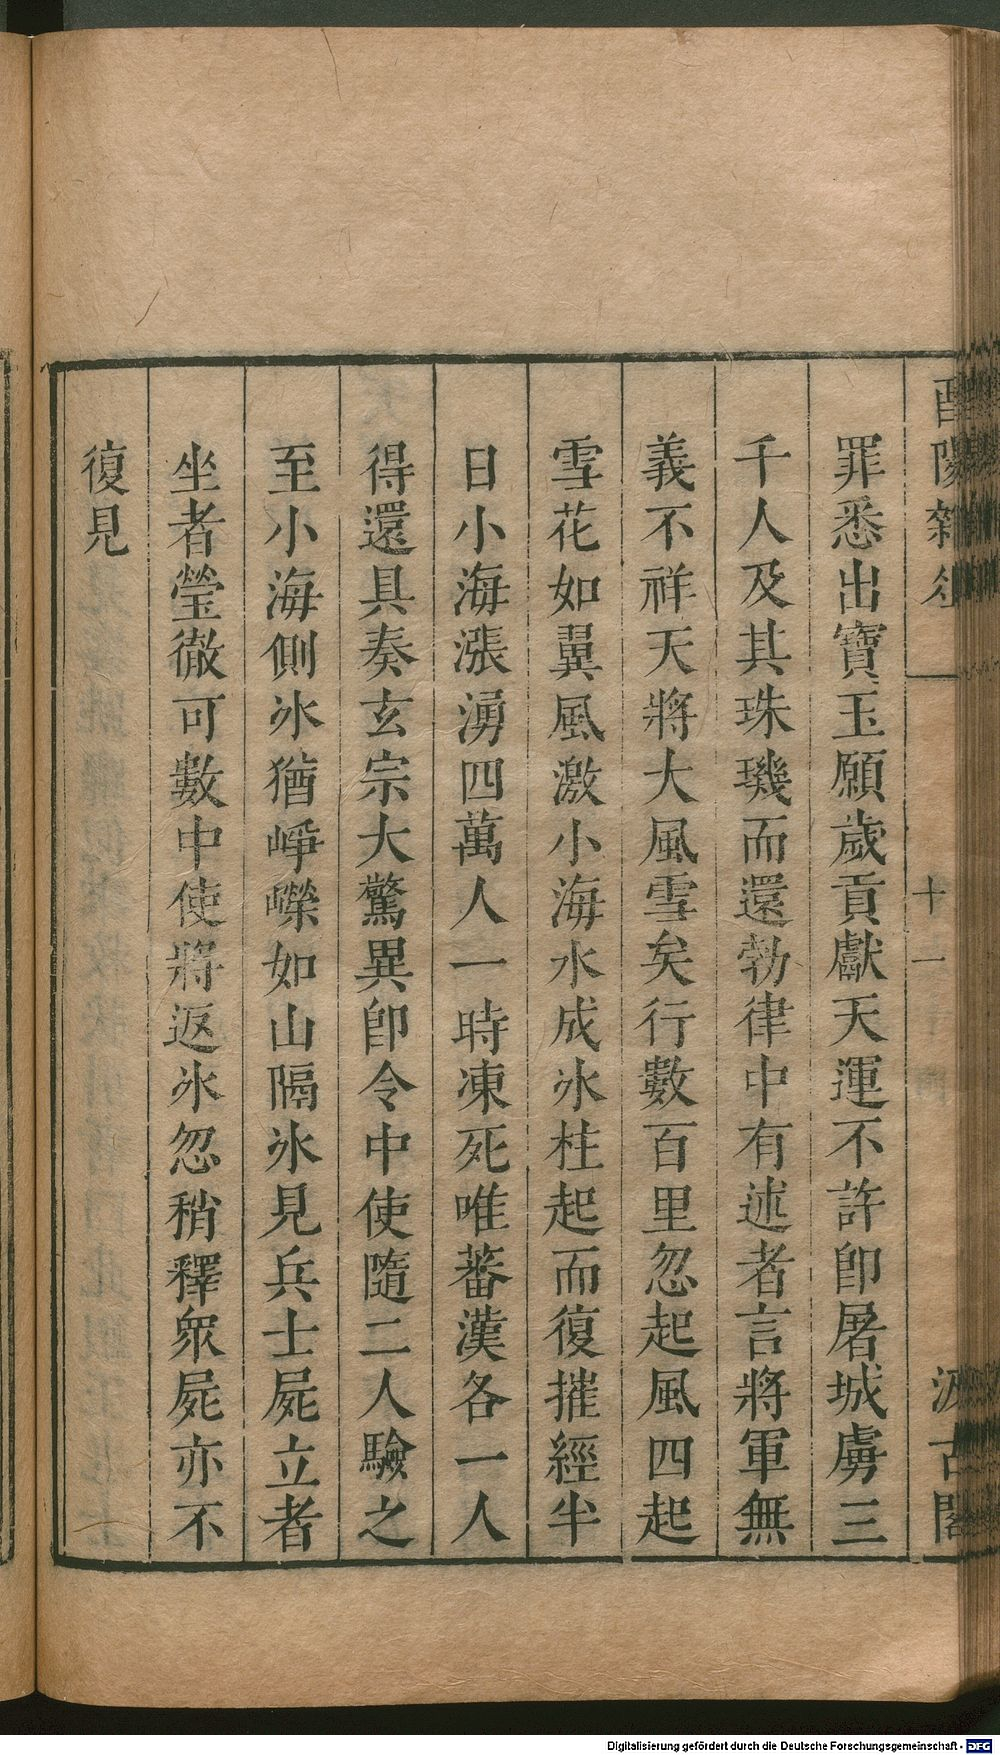 酉陽雜俎
十一
汲古閣
罪悉出寶玉願歲貢獻天運不許卽屠城虜三
千人及其珠璣而還勃律中有述者言將軍無
義不祥天將大風雪矣行數百里忽起風四起
雪花如翼風激小海水成氷柱起而復摧經半
日小海漲湧四萬人一時凍死唯蕃漢各一人
得還具奏玄宗大驚異卽令中使隨二人驗之
至小海側氷猶崢嶸如山隔氷見兵士屍立者
坐者瑩徹可數中使將返氷忽稍釋衆屍亦不
復見
Digitalisierung gefördert durch die Deutsche Forschungsgemeinschaft - DFG